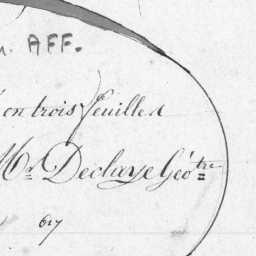 AFF.
en trois feuilles
Mr Declaye Géotre